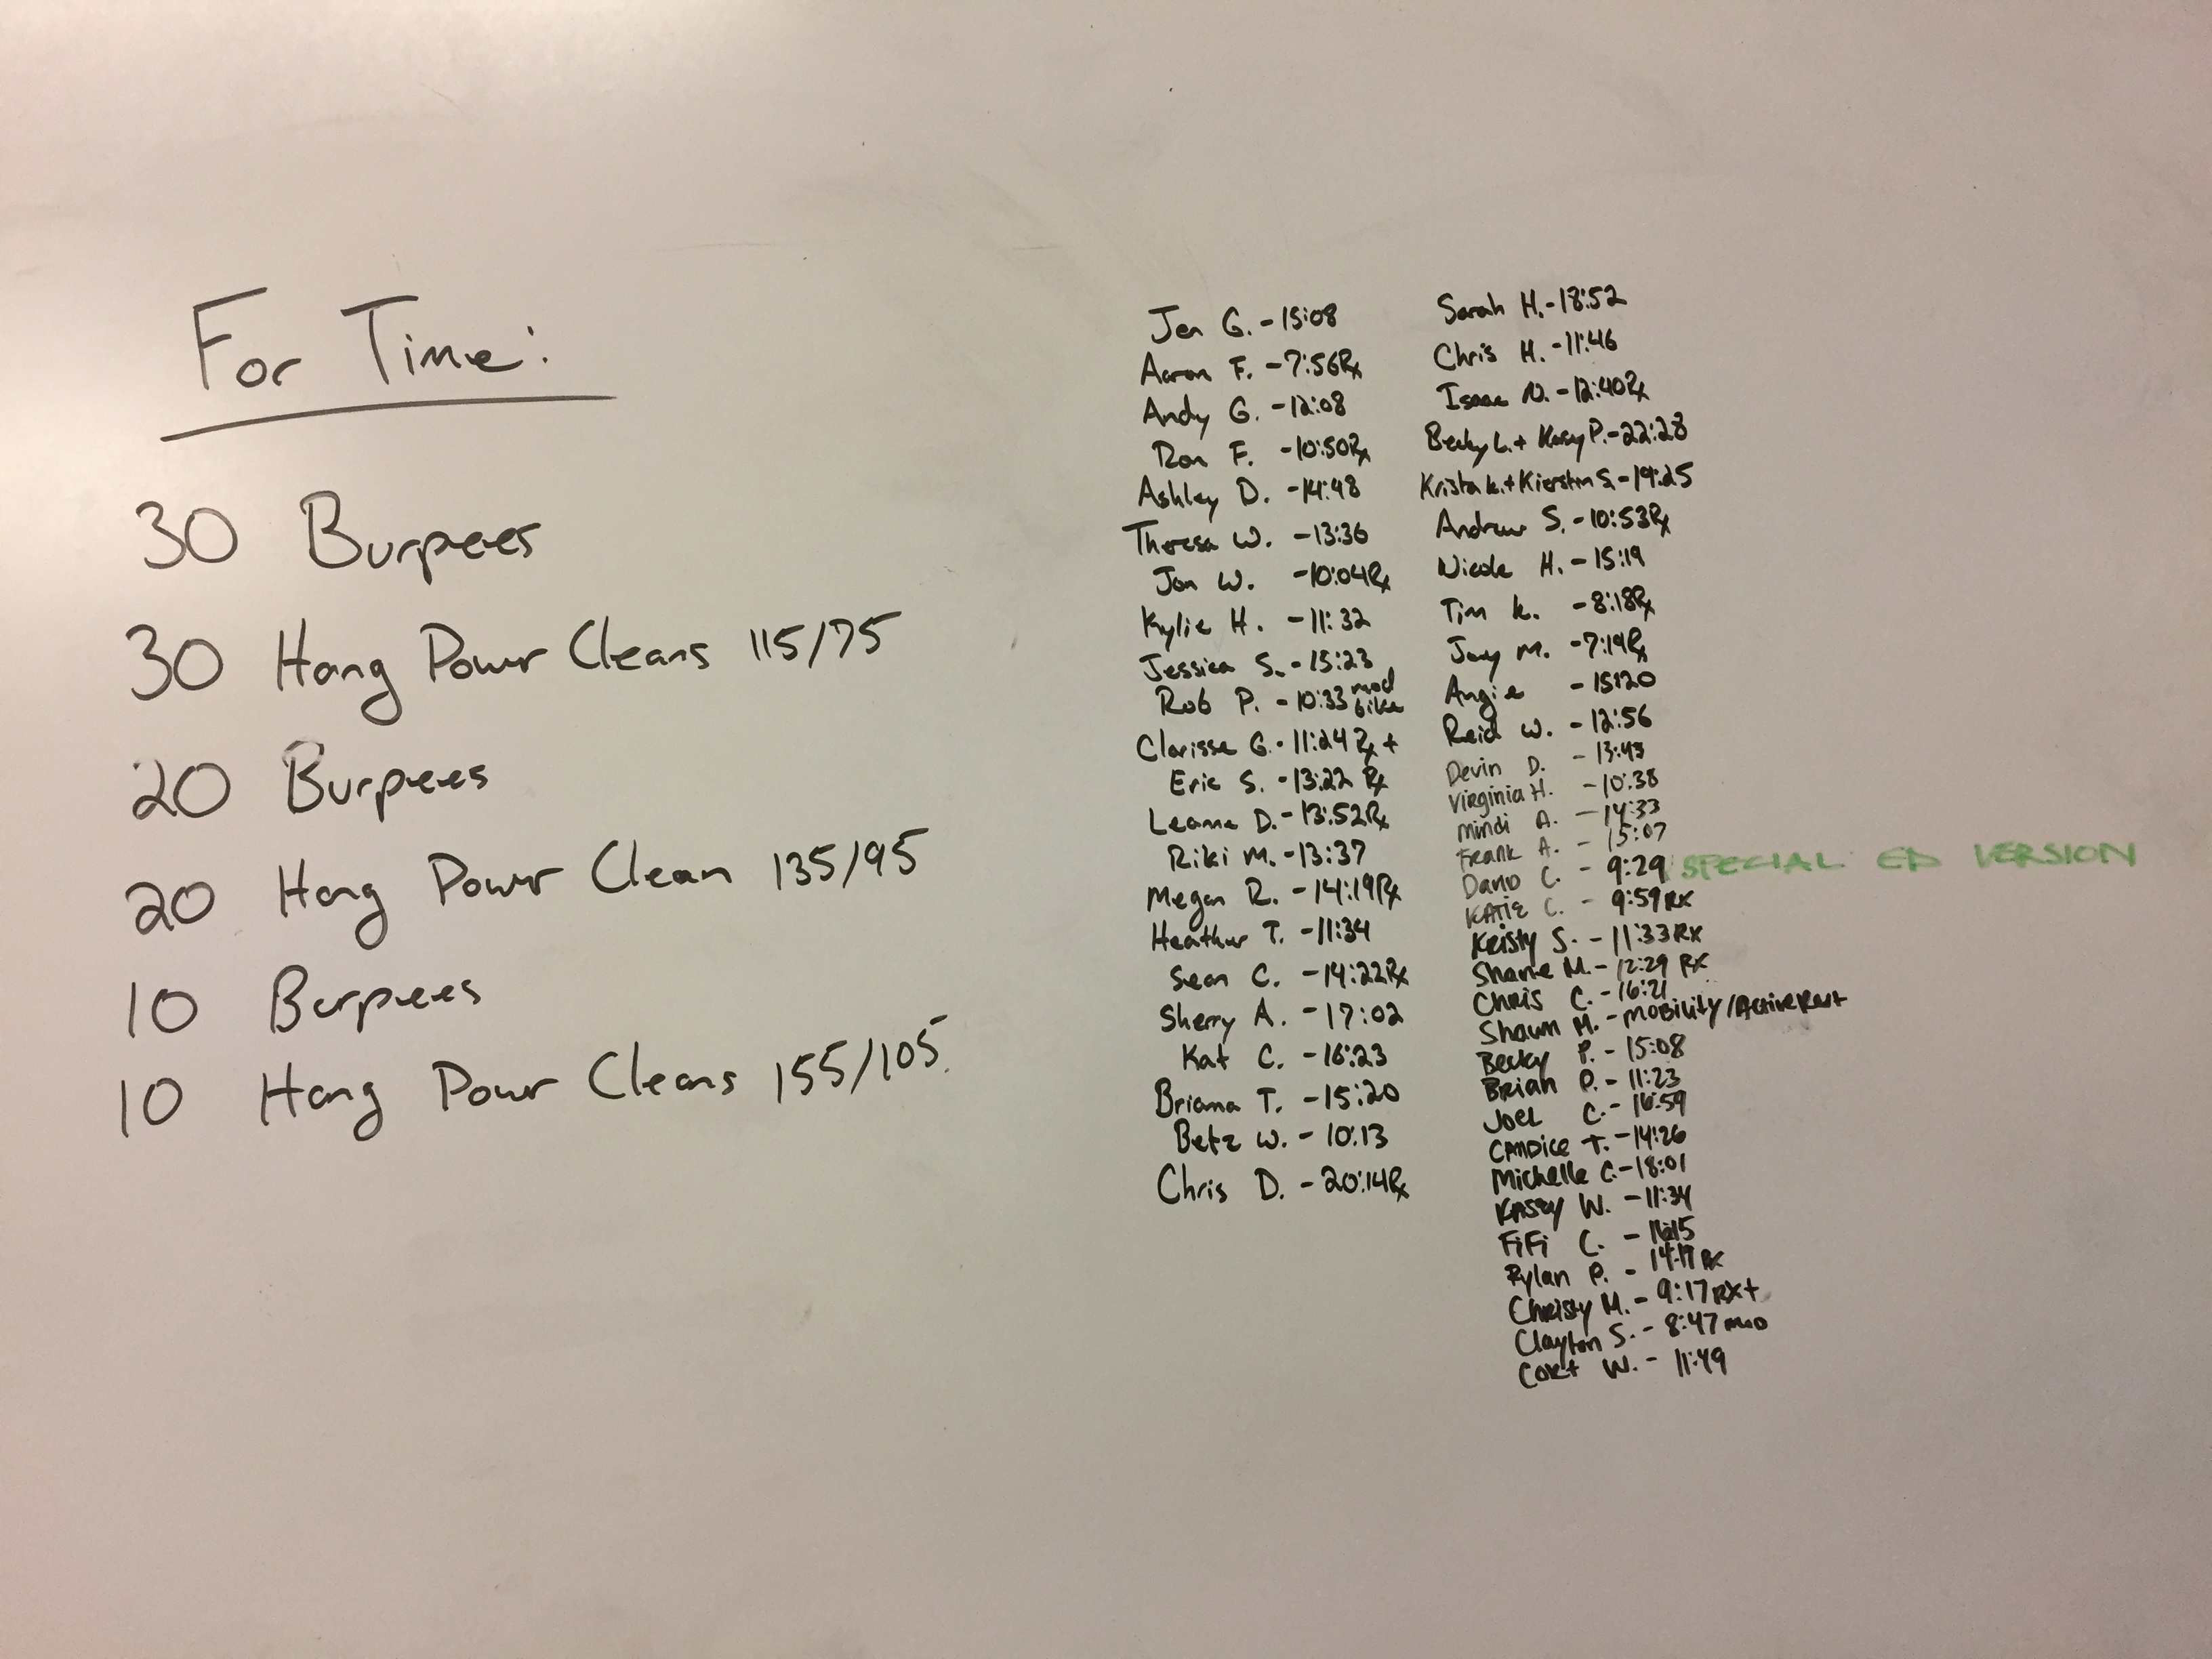 For Time:
30 Burpees
30 Hang Power Cleans 115/75
20 Burpees
20 Hang Power Clean 135/95
10 Burpees
10 Hang Power Cleans 155/105
Jen G. - 15:08
Aaron F. - 7:56 Rx
Andy G. - 12:08
Ron F. - 10:50 Rx
Ashley D. - 14:48
Theresa W. - 13:36
Jon W. - 10:04 Rx
Kylie H. - 11:32
Jessica S. - 15:23
Rob P. - 10:33 mod bike
Clarisse G. - 11:24 Rx +
Eric S. - 13:22 Rx
Leanne D. - 13:52 Rx
Riki M. - 13:37
Megan R. - 14:19 Rx
Heather T. - 11:34
Sean C. - 14:22 Rx
Sherry A. - 17:02
Kat C. - 16:23
Briana T. - 15:20
Betz W. - 10:13
Chris D. - 20:14 Rx
Sarah H. - 18:52
Chris H. - 11:46
Isaac N. - 12:40 Rx
Becky L. + Kasey P. - 22:28
Krista K. + Kierstin S. - 19:25
Andrew S. - 10:53 Rx
Nicole H. - 15:19
Tim K. - 8:18 Rx
M. - 7:19 Rx
Angie - 15:20
Reid W. - 12:56
Devin D. - 13:43
Virginia H. - 10:38
Mindi A. - 14:33
Frank A. - 15:07
C. - 9:29 SPECIAL ED VERSION
KATIE C. - 9:59 RX
Kristy S. - 11:33 RX
Shane M. - 12:29 RX
Chris C. - 16:21
Shawn M. - Mobility/Active Rest
Becky P. - 15:08
Brian P. - 11:23
Joel C. - 16:59
CANDICE T. - 14:26
Michelle C. - 18:01
Kasey W. - 11:34
FiFi C. - 16:15
Rylan P. - RX
Christy M. - 9:17 RX+
Clayton S. - 8:47 mod
Cort W. - 11:49